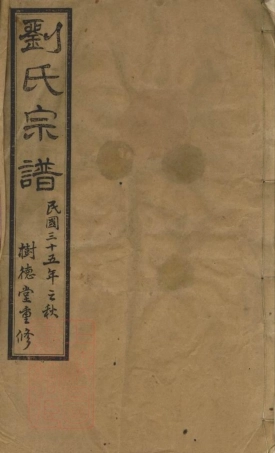 劉氏宗譜
民國三十五年之秋
樹德堂重修